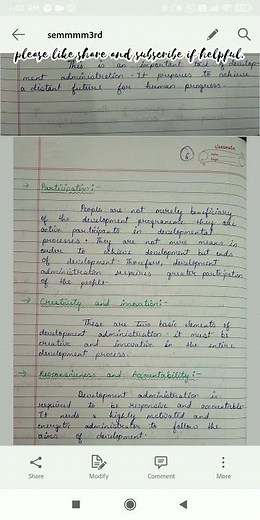 semmmm3rd
please like share and subscribe if helpful.
This is an important task of develop-
ment administration. It prepares to achieve
a distant future for human progress.
6
→ Participation:-
People are not merely beneficiary
of the development programme they are
active participants in developmental
processes. They are not mere means in
order to achieve development but ends
of development. Therefore, development
administration requires greater participation
of the people.
→ Creativity and innovation:-
These are two basic elements of
development administration it must be
creative and innovative in the entire
development process.
→ Responsiveness and Accountability:-
Development administration is
required to be responsive and accountable.
It needs a highly motivated and
energetic administrator to follow the
aims of development.
Share Modify Comment More